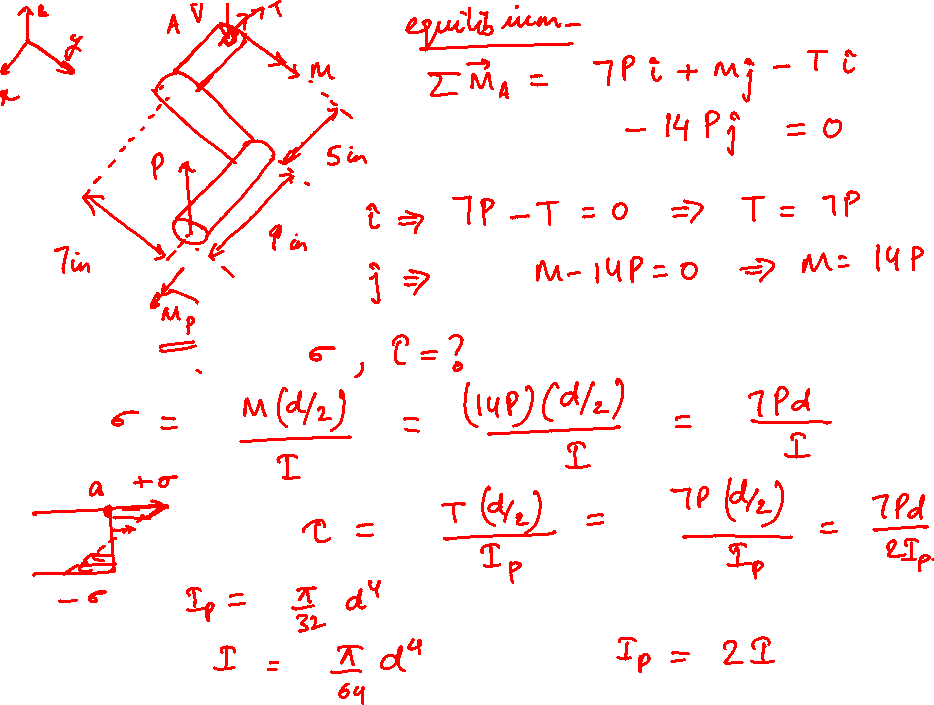 z
y
x
A V T
M
P
5 in
9 in
7in
M_P
equilibrium-
Σ M⃗_A = 7P î + Mĵ - T î
- 14 P ĵ = 0
î ⇒ 7P - T = 0 ⇒ T = 7P
ĵ ⇒ M - 14P = 0 ⇒ M = 14P
σ, τ = ?
σ = M(d/2) / I = (14P)(d/2) / I = 7Pd / I
a +σ
-σ
τ = T(d/2) / I_p = 7P(d/2) / I_p = 7Pd / 2I_p.
I_p = π/32 d⁴
I = π/64 d⁴ I_p = 2I